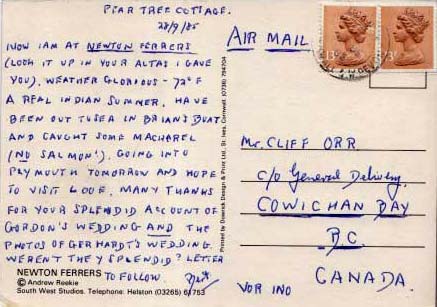 PEAR TREE COTTAGE.
28/9/85
NOW I AM AT NEWTON FERRERS
(LOOK IT UP IN YOUR ALTAS I GAVE
YOU), WEATHER GLORIOUS - 72°F
A REAL INDIAN SUMMER, HAVE
BEEN OUT TO SEA IN BRIAN'S BOAT
AND CAUGHT SOME MACKAREL
(NO SALMON!). GOING INTO
PLYMOUTH TOMORROW AND HOPE
TO VISIT LOOE. MANY THANKS
FOR YOUR SPLENDID ACCOUNT OF
GORDON'S WEDDING AND THE
PHOTOS OF GERHARDT'S WEDDING.
WERENT THEY SPLENDID? LETTER
TO FOLLOW.
NEWTON FERRERS
© Andrew Reekie
South West Studios. Telephone: Helston (03265) 61753
Printed by Dowrick Design & Print Ltd., St. Ives, Cornwall. (0736) 794704
AIR MAIL
13P
Mr. CLIFF ORR
c/o General Delivery
COWICHAN BAY
B.C.
CANADA.
VOR INO